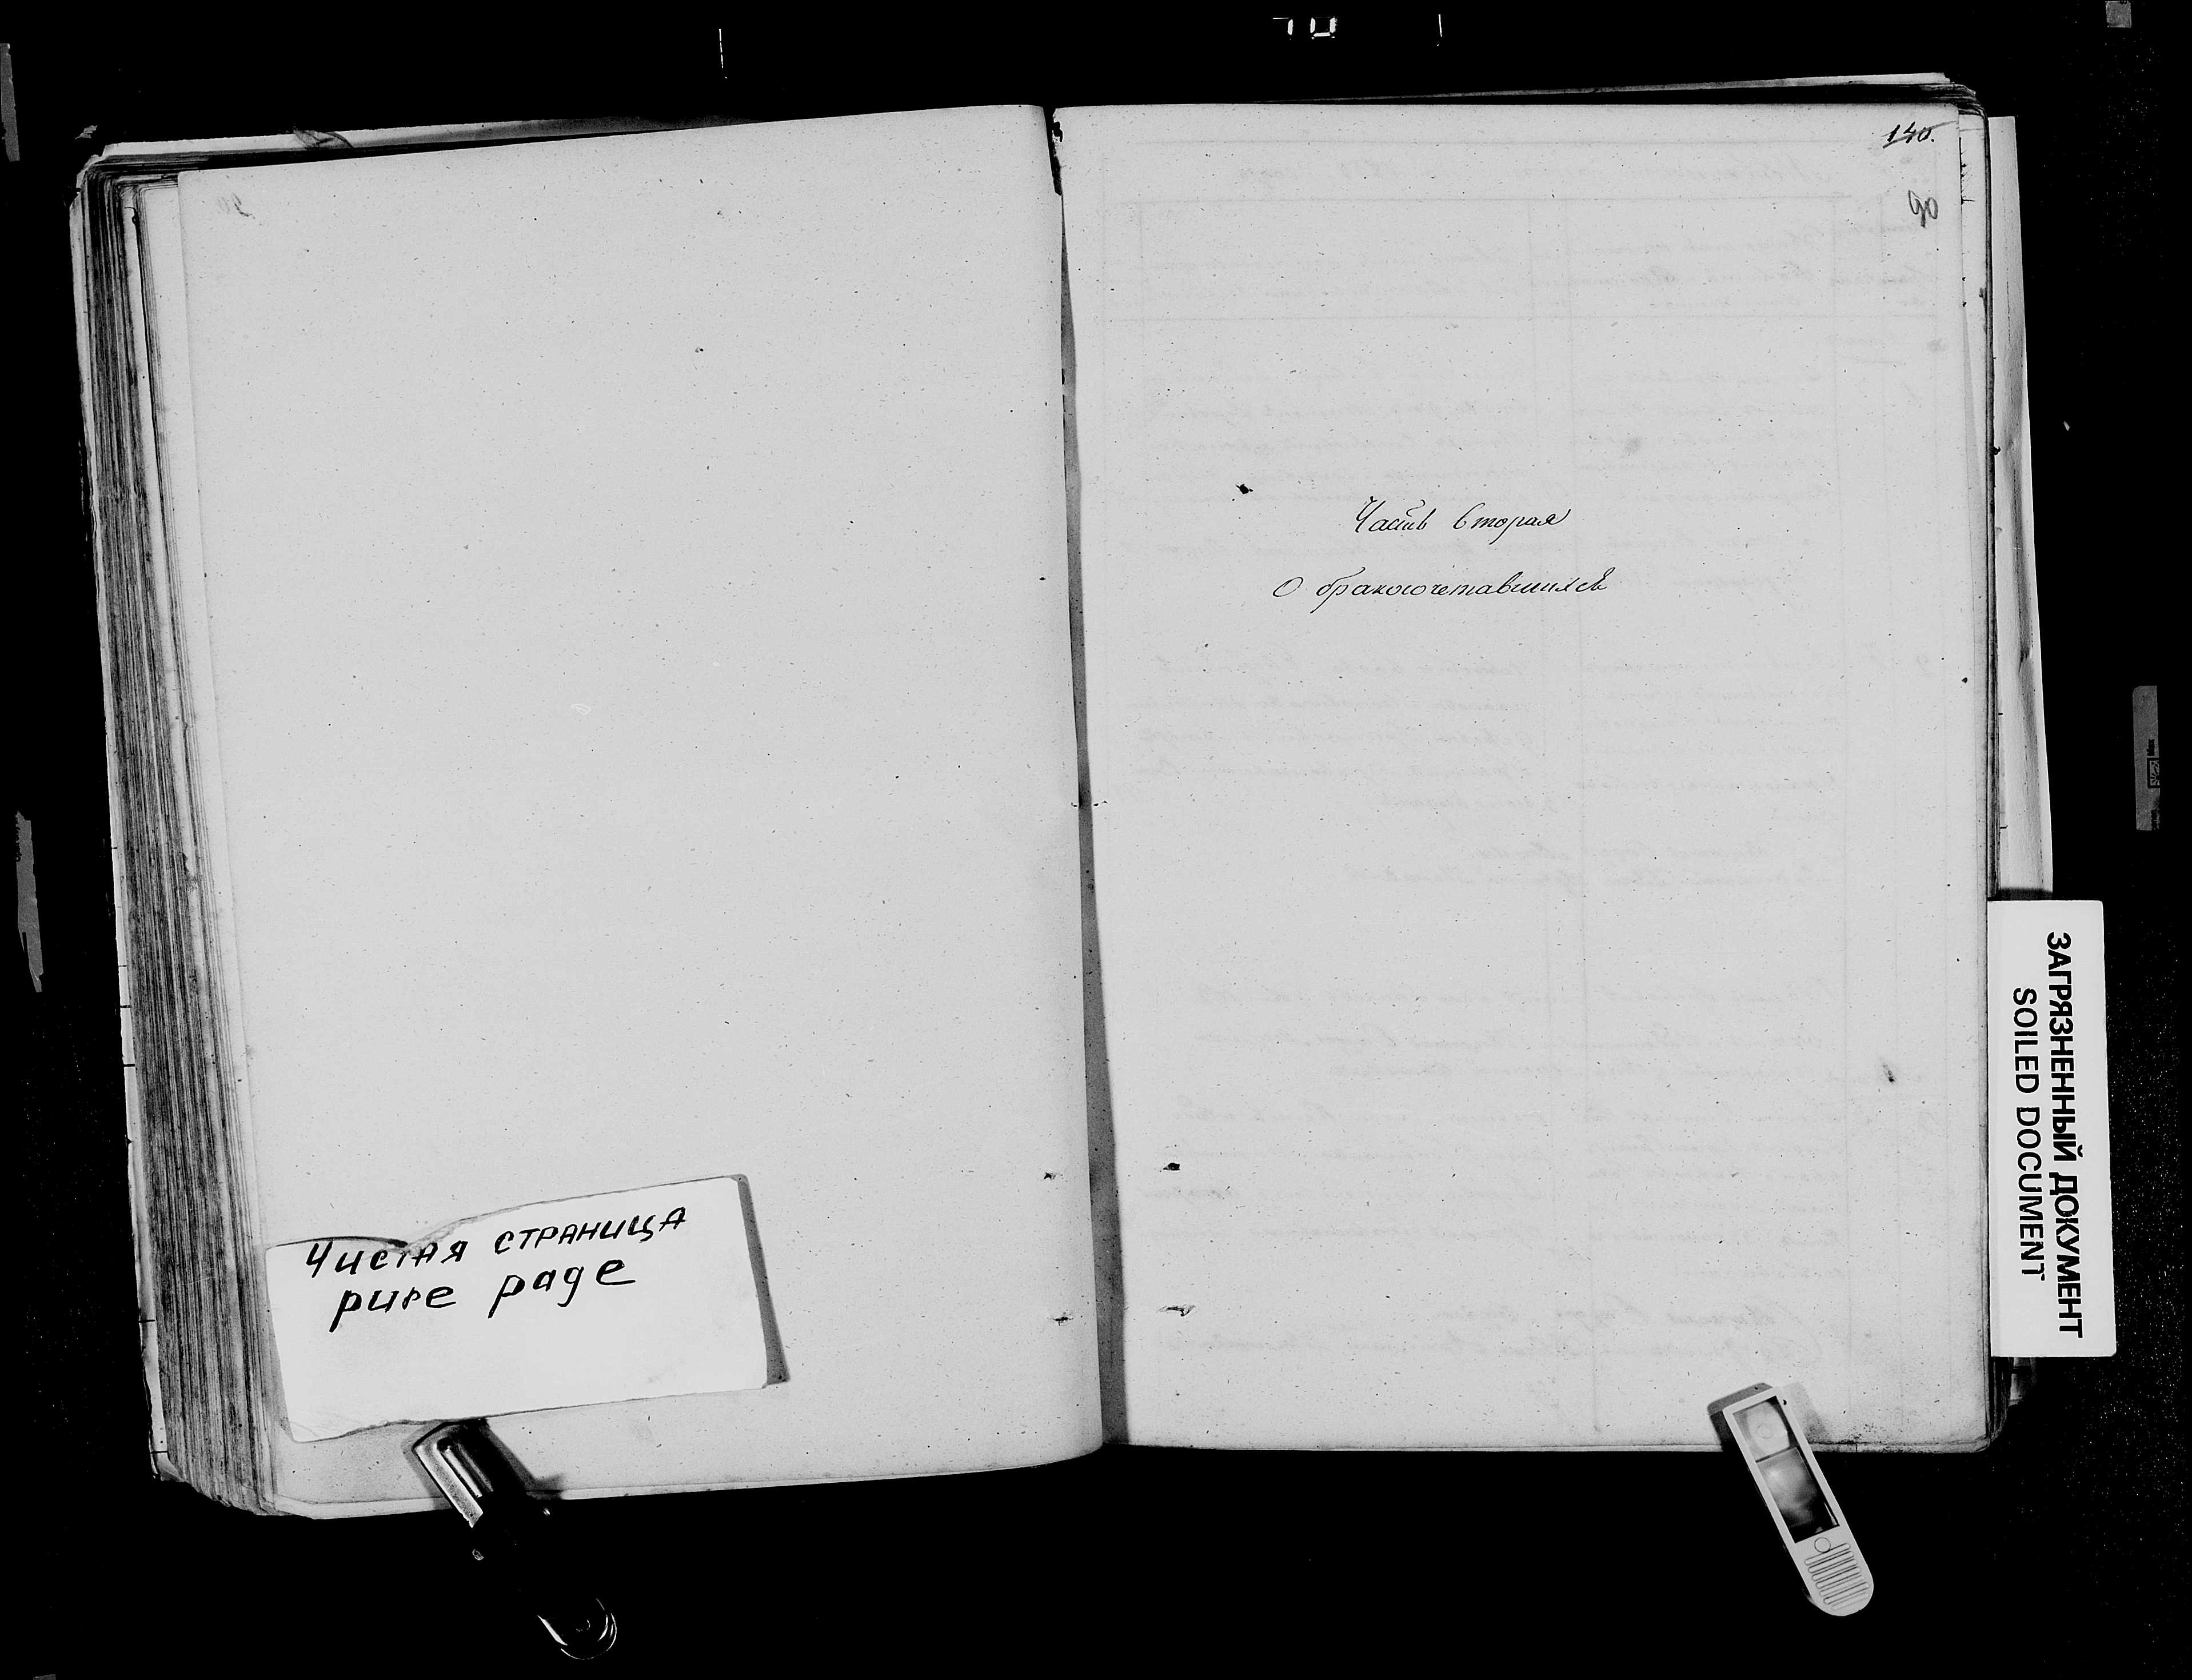 Чистая страница
pure page
140.
90
Часть вторая
О бракосочетавшихся
ЗАГРЯЗНЕННЫЙ ДОКУМЕНТ
SOILED DOCUMENT